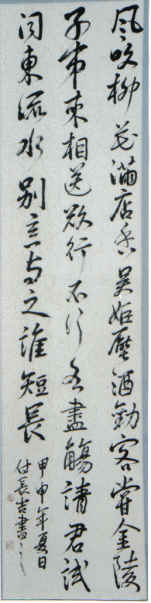 風吹柳花滿店香吳姬壓酒勸客嘗金陵
子弟來相送欲行不行各盡觴請君試
問東流水別意与之誰短長
甲申年夏日
付長吉書